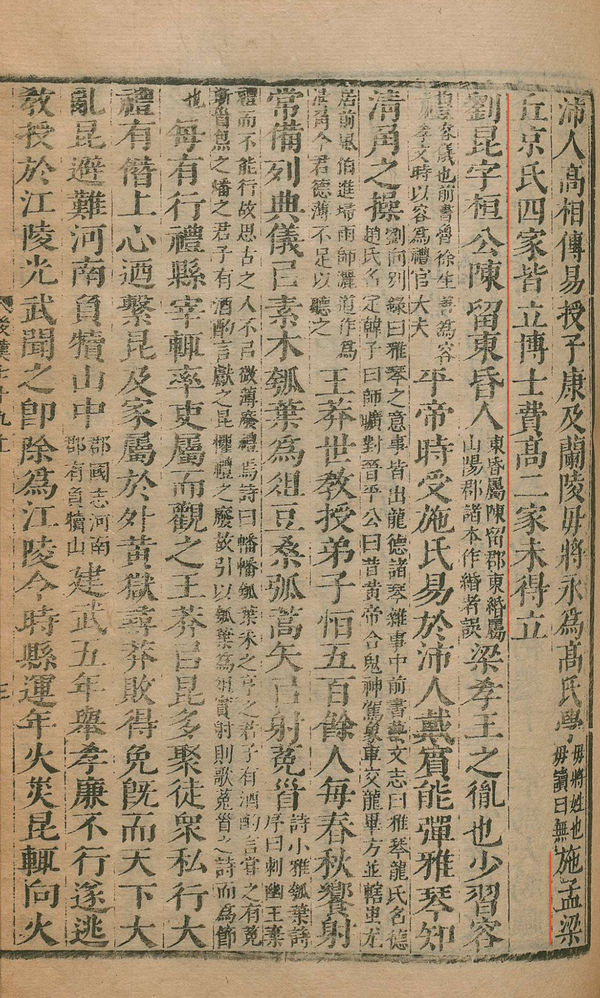 沛人高相傳易授子康及蘭陵毋將永為高氏學毋將姓也毋讀曰無施孟梁
丘京氏四家皆立博士費高二家未得立
劉昆字桓公陳留東昏人東昏屬陳留郡東緡屬山陽郡諸本作緡者誤梁孝王之胤也少習容
禮容儀也前書魯徐生善為容孝文時以容為禮官大夫平帝時受施氏易於沛人戴賓能彈雅琴知
清角之操劉向別錄曰雅琴之意事皆出龍德諸琴雜事中前書藝文志曰雅琴龍氏名德趙氏名定韓子曰師曠對晉平公曰昔黃帝合鬼神駕象車交龍畢方並轄蚩尤
居前風伯進掃雨師灑道作為清角今君德薄不足以聽之王莽世教授弟子恒五百餘人每春秋饗射
常備列典儀㠯素木瓠葉為俎豆桑弧蒿矢㠯射菟首詩小雅瓠葉詩序曰刺幽王棄
禮而不能行故思古之人不㠯微薄廢禮焉詩曰幡幡瓠葉采之亨之君子有酒酌言嘗之有菟斯首炰之燔之君子有酒酌言獻之昆懼禮之廢故引以瓠葉為俎實射則歌菟首之詩而為節
也每有行禮縣宰輒率吏屬而觀之王莽㠯昆多聚徒眾私行大
禮有僭上心迺繫昆及家屬於外黃獄尋莽敗得免既而天下大
亂昆避難河南負犢山中郡國志河南郡有負犢山建武五年舉孝廉不行遂逃
教授於江陵光武聞之即除為江陵令時縣連年火災昆輒向火
後漢七十九上
三